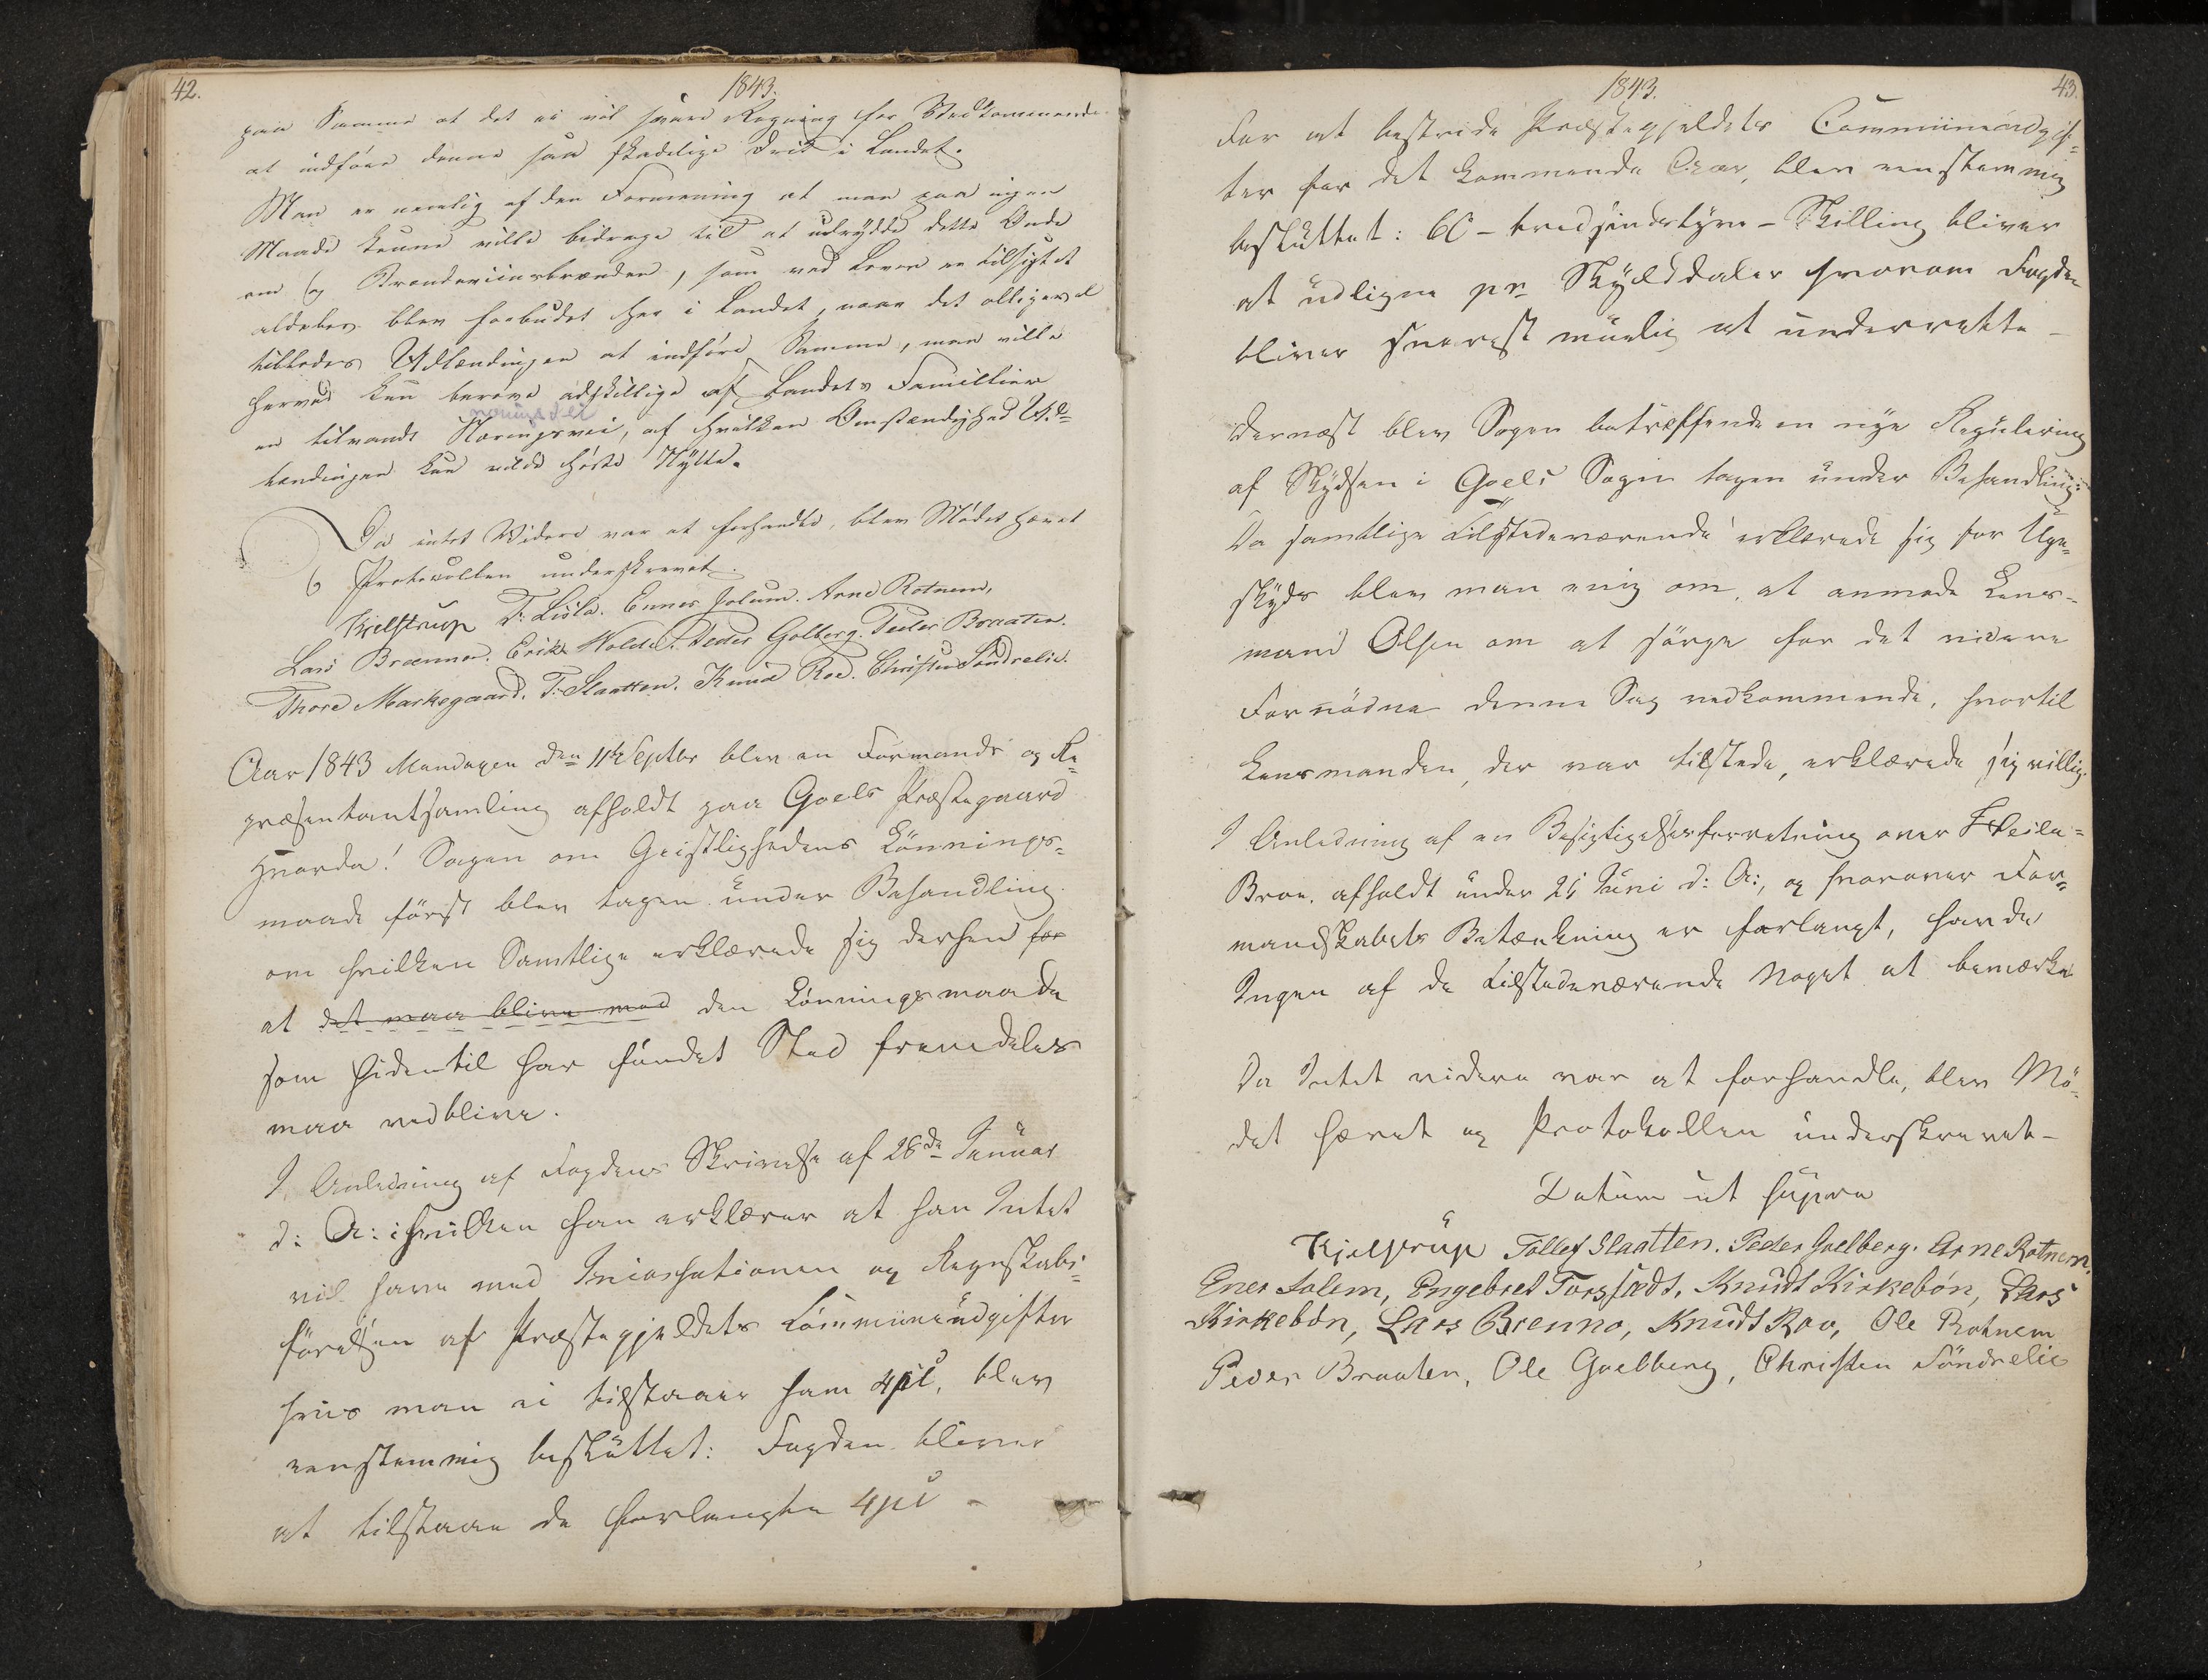 42.
1843.
paa Samme at det ei vil svare Regning for Vedkommende
at indføre denne saa skadelige Drik i Landet.
Man er nemlig af den Formening at man paa ingen
Maade kunne ville bidrage til at udrydde dette Onde
om og Brændeviinsbrænden, som ved Loven er tilsigtet
aldeles blev forbudet her i Landet, naar det alligevel
tillodes Udlændingen at indføre Samme, man ville
herved kun berøve adskillige af Landets Familier
næringsvei
en tilvandt Næringsvei, af hvilken Omstændighed Ud-
lændingen kun vilde høste Nytte.
Da intet Videre var at forhandle, blev Mødet hævet
og Protocollen underskrevet.
Kielstrup T. Lisla. Enner Jolum. Arne Rotnem,
Lars Brænno. Erik Holde. Peder Golberg. Peder Braaten.
Thore Markegaard. T. Slaatten. Knud Roe. Christen Søndrelie.
Aar 1843 Mandagen den 11te Septbr blev en Formands og Re=
præsentantsamling afholdt paa Goels Præstegaard
hvorda! Sagen om Geistlighedens Lønnings=
maade først blev tagen under Behandling
om hvilken Samtlige erklærede sig derhen for
at det maa blive med den Lønningsmaade
som hidentil har fundet Sted fremdeles
maa vedblive.
I Anledning af Fogdens Skrivelse af 28de Januar
d: A: i hvilken han erklærer at han Intet
vil have med Incassationen og Regnskabs=
førelsen af Præstegjeldets Communeudgifter
hvis man ei tilstaaer ham 4 pCt, blev
eenstemmig besluttet: Fogden bliver
at tilstaae de forlangte 4 pCt -
1843.
43.
For at bestride Præstegjeldets Communeudgif=
ter for det kommende Aar, blev eenstemmig
besluttet: 60 - tredsindstyve - Skilling bliver
at udligne pr Skylddaler hvorom Fogden
bliver snarest muelig at underrette -
Dernæst blev Sagen betreffende en nye Regulering
af Skydsen i Goels Sogn tagen under Behandling:
Da samtlige Tilstedeværende erklærede sig for Uge=
skyds blev man enig om, at anmode Lens-
mand Olsen om at sørge for det videre
Fornødne denne Sag vedkommende, hvortil
Lensmanden, der var tilstede, erklærede sig villig.
I Anledning af en Besigtigelsesforretning over Heslu=
Broe, afholdt under 21 Juni d: A:, og hvorover For=
mandskabets Betænkning er forlangt, havde
Ingen af de Tilstedeværende Noget at bemærke
Da Intet videre var at forhandle, blev Mö=
det hævet og Protokollen underskrevet -
Datum ut supra
Kjelstrup Tollef Slaatten. Peder Goelberg. Arne Rotnem.
Ener Solem, Engebret Torsstedt, Knudt Kirkebön, Lars
Kirkebön, Lars Brenno, Knudt Roo, Ole Rotnem
Peder Braaten, Ole Goelberg, Christen Söndrelie